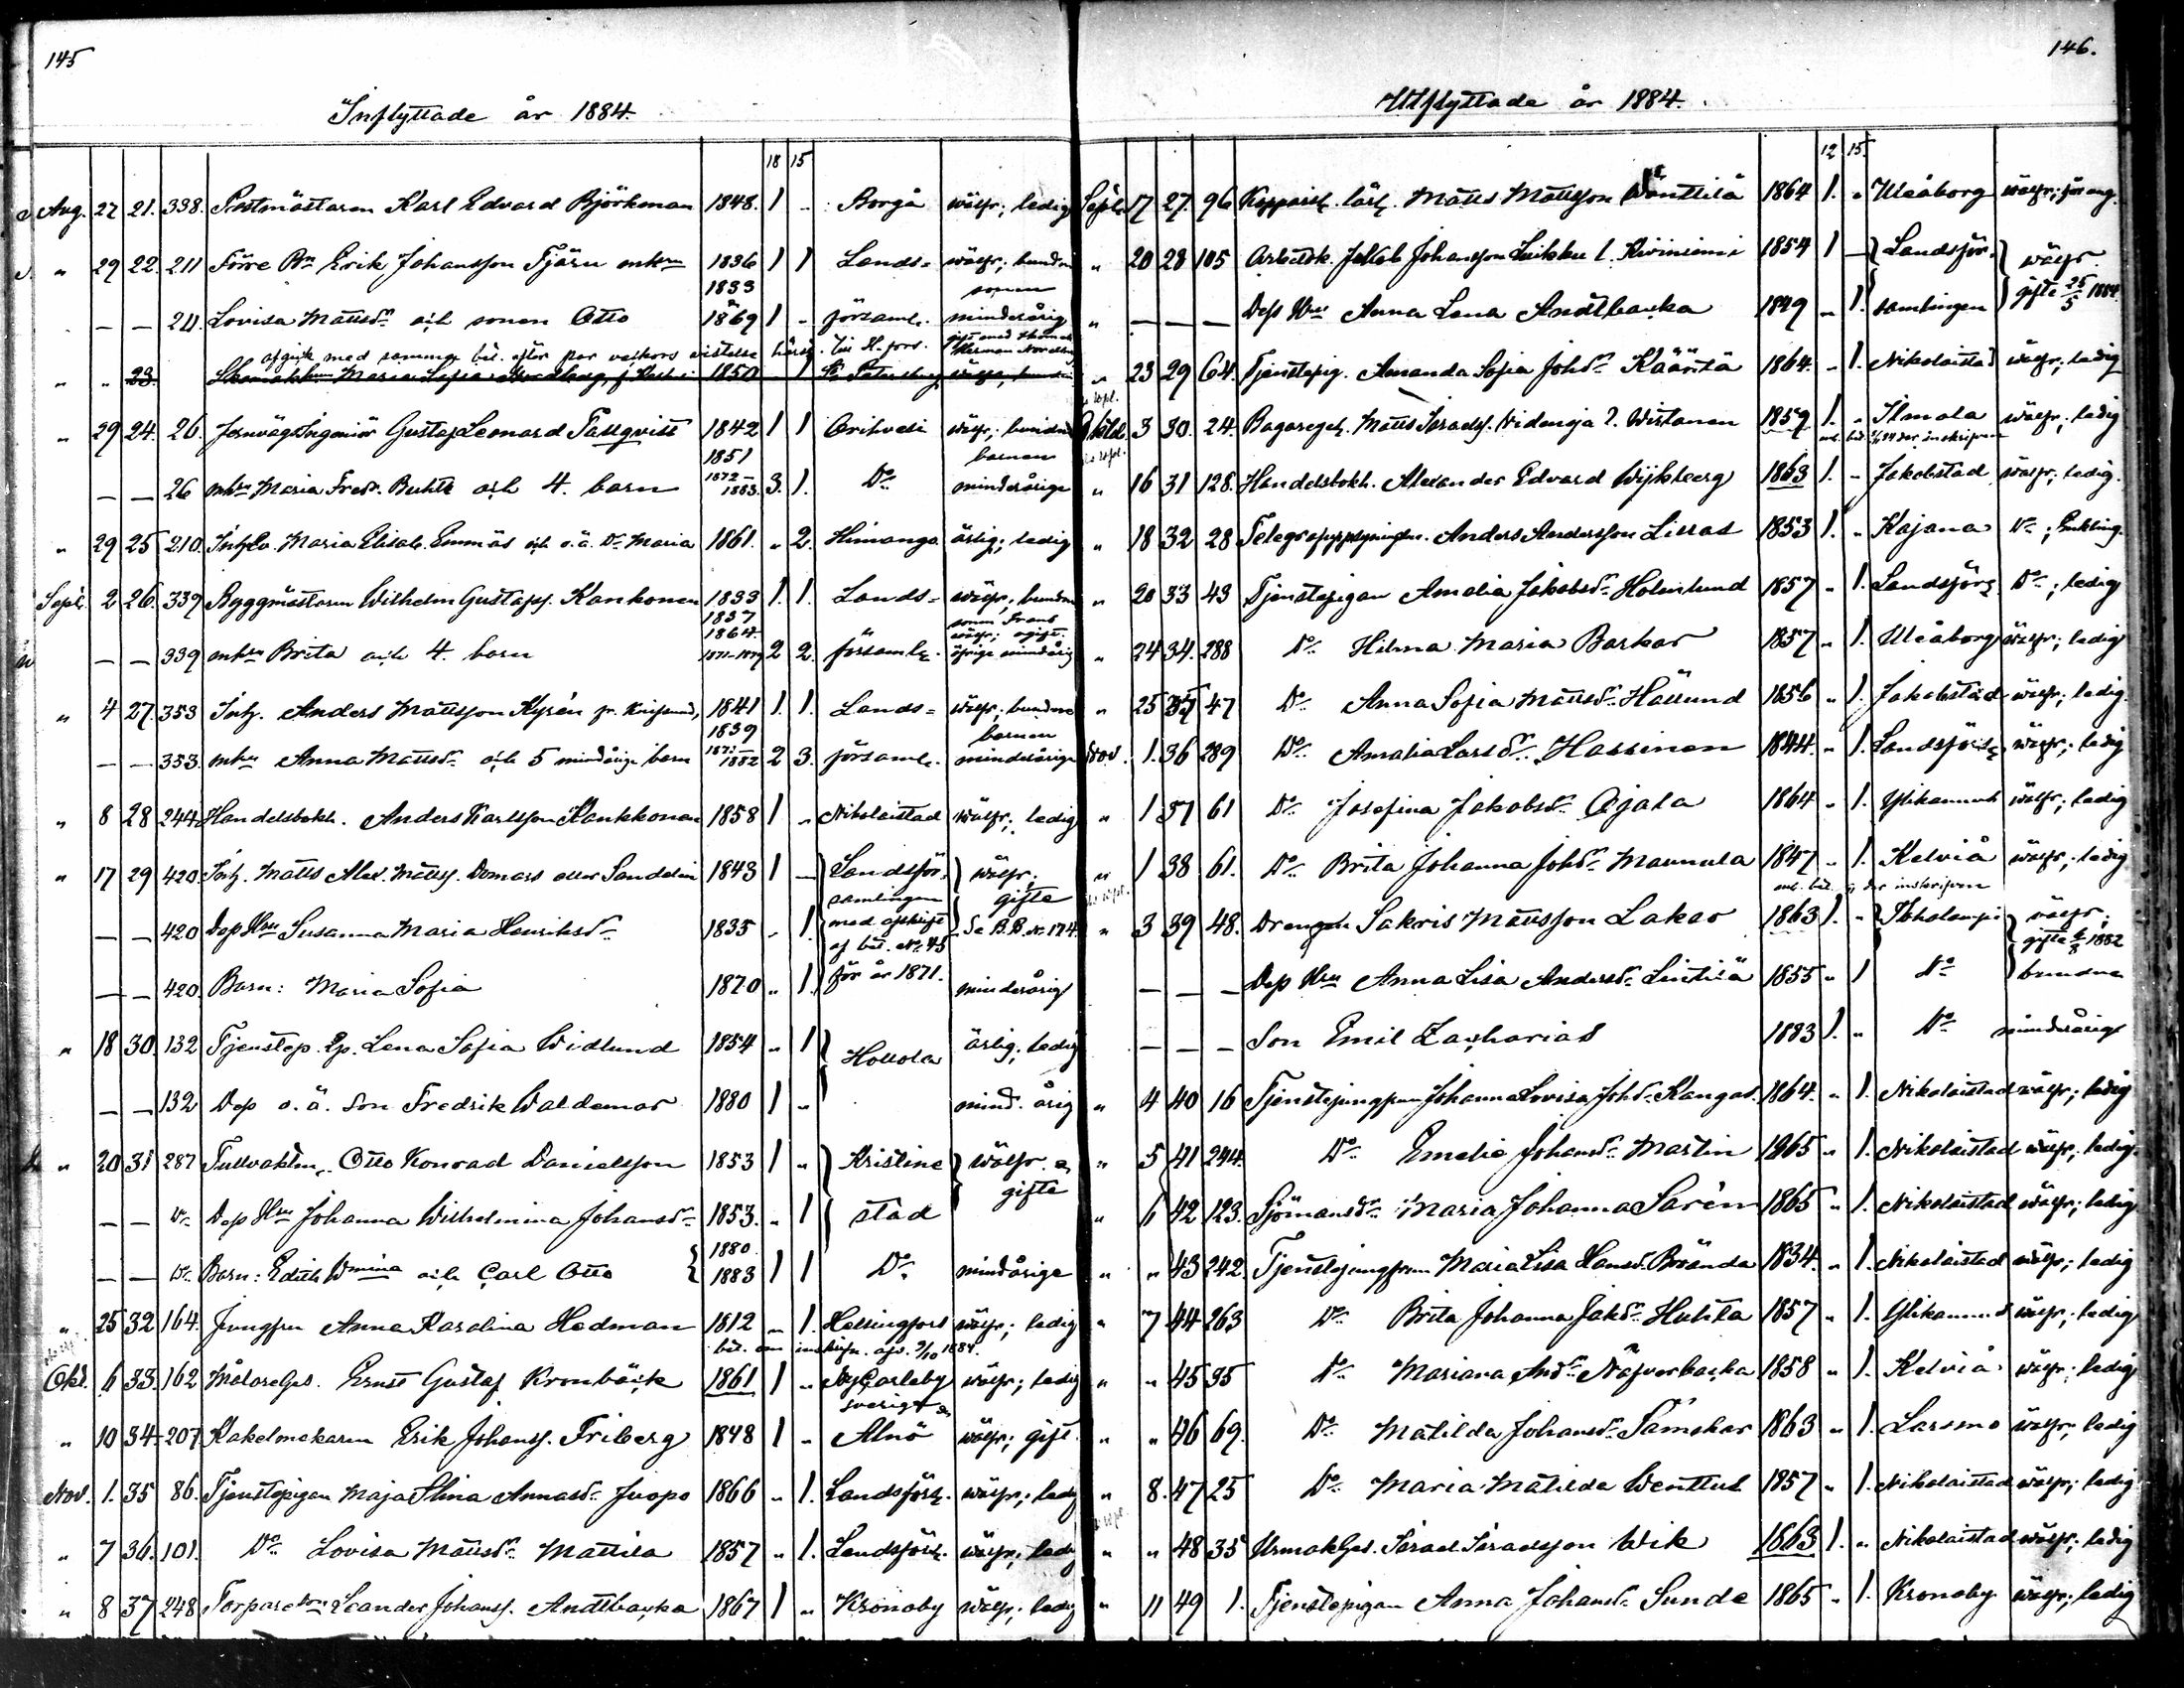 145
Inflyttade år 1884.
18 15
Aug. 27 21. 338. Postmästaren Karl Edvard Björkman 1848. 1 " Borgå wälfr; ledig
" 29 22. 211 Förre Bn Erik Johansson Tjäru mhru 1836 1833 1 1 Lands= wälfr; bundna
— — 211 Lovisa Mattsdr och sonen Otto 1869 1 - församl. sonen minderårig
afgick med samma bet. efter par veckors vistelse härst. till H.fors.
" " 23. Maria Sofia Nordberg, f. 1850 1 St Petersburg
" 29 24. 26. Jernvägs Ingeniör Gustaf Leonard Tallqvist 1842 1 1 Orihvesi wälfr; bundna
— — 26 mhru Maria Fredr. och 4. barn 1851 1872–1883. 3. 1. Do barnen minderåriga
" 29 25 210. Inh. Maria Elisab. Emmäs och o.ä. Dr Maria 1861. " 2. Himango ärlig; ledig
Sept. 2 26. 339 Byggmästaren Wilhelm Gustafss. Kankonen 1833 1. 1. Lands= wälfr; bundna
— — 339 mhru Brita och 4. barn 1837 1864. 1871-1879 2 2. församlg. sonen Frans wälfr; ogift. öfriga mindårig
" 4 27. 353 Inh. Anders Mattsson Kyrén fr. 1841 1. 1. Lands= wälfr; bundna
— — 353. mhru Anna Mattsdr och 5 mindåriga barn 1839 1871–1882 2 3. församl. barnen minderåriga
" 8 28 244 Handelsbokh. Anders Karlsson Kankkonen 1858 1 " Nikolaistad wälfr; ledig
" 17 29 420. Inh. Matts Alex. Mattss. Domars eller Sandelin 1843 1 — Landsför= wälfr.
— — 420 Dess Hru Susanna Maria Henriksdr 1835 - 1. samlingen med afskrift af bet. No 45 för år 1871. gifte Se B.B. No 174
— — 420. Barn: Maria Sofia 1870 " 1. minderårig
" 18 30. 132 Tjenstep. Ep. Lena Sofia Widlund 1854 " 1 Hollola ärlig; ledig
— — 132 Dess o.ä. son Fredrik Waldemar 1880 1 " mind. årig
" 20 31 287 Tullvaktm. Otto Konrad Danielsson 1853 1 " Kristine wälfr. &
— — Do Dess Hru Johanna Wilhelmina Johansdr 1853. " 1 stad gifte
— — Do Barn: Edith Wmina och Carl Otto 1880. 1883 1 1 Do mindåriga
" 25 32 164. Jungfru Anna Karolina Hedman 1812 — 1. Helsingfors wälfr; ledig
Okt. 6 33. 162 MålareGes. Ernst Gustaf Kronbäck 1861 1 " NyCarleby wälfr; ledig
" 10 34 207 Kakelmakaren Erik Johanss. Friberg 1848 1 " Sverige Alnö wälfr; gift
Nov. 1. 35 86. Tjenstepigan Maja Stina Annasdr Juopo 1866 " 1. Landsförs. wälfr; ledig
" 7 36. 101. Do Lovisa Mattsdr Mattila 1857 " 1. Landsförs. wälfr; ledig
" 8 37 248 Torpareson Leander Johanss. Andtbacka 1867 1 " Kronoby wälfr; ledig
146.
Utflyttade år 1884.
12 15.
Sept. 17 27. 96 Kopparsl. lärl. Matts Mattsson Wänttilä 1864 1. " Uleåborg wälfr; för ung.
" 20 28 105 Arbetsk. Jakob Johansson Leikku l. Kiviniemi 1854 1 — Landsför= wälfr.
" — — — Dess Hru Anna Lena Andtbacka 1849 " 1. samlingen gifte 25/5 1884.
" 23 29 64. Tjenstepig. Amanda Sofia Johdr Kääntä 1864. " 1. Nikolaistad wälfr; ledig
Oktbr. 3 30. 24. Bagaregs. Matts Israelss. Videnoja l. Wirtanen 1859 1. " Ilmola wälfr; ledig
" 16 31 128. Handelsbokh. Alexander Edvard Wijkberg 1863 1. " Jakobstad wälfr; ledig.
" 18 32 28 Anders Andersson Lissas 1853 1. " Kajana Do; Enkling.
" 20 33 43 Tjenstepigan Amalia Jakobsdr Holmlund 1857 " 1. Landsförs. Do; ledig
" 24 34. 288 Do Hilma Maria Backar 1857 " 1. Uleåborg wälfr; ledig
" 25 35 47 Do Anna Sofia Mattsdr Hällund 1856 " 1. Jakobstad wälfr; ledig.
Nov. 1. 36 289 Do Amalia Larsdr Hassinen 1844. " 1. Landsförs. wälfr; ledig
" 1 37 61 Do Josefina Jakobsdr Ojala 1864 " 1. Ylikannus wälfr; ledig
" 1 38 61. Do Brita Johanna Johdr Mannula 1847 " 1. Kelviå wälfr; ledig
" 3 39 48. Drengen Sakris Mattsson Lakar 1863 1. " Toholampi wälfr; gifte 1882
— — — Dess Hru Anna Lisa Andersdr Lintilä 1855 " 1 Do bundna
— — — Son Emil Zacharias 1883 1. " Do minderårig
" 4 40 16 Tjenstejungfrun Johanna Lovisa Johdr Kangas. 1864. " 1. Nikolaistad wälfr; ledig
" 5 41 244. Do Emelie Johansdr Martin 1865 " 1. Nikolaistad wälfr; ledig.
" 6 42 123. Sjömansdr Maria Johanna Sarén 1865 " 1. Nikolaistad wälfr; ledig
" " 43 242. Tjenstejungfrun Maria Lisa Hansdr Brända 1834. " 1. Nikolaistad wälfr; ledig
" 7 44 263 Do Brita Johanna Jakdr Huhta 1857 " 1. Ylikannus wälfr; ledig
" " 45 35 Do Mariana Anddr Näfverbacka 1858 " 1. Kelviå wälfr; ledig
" " 46 69. Do Matilda Johansdr Sämskar 1863 " 1. Larsmo wälfr; ledig
" 8. 47 25 Do Maria Matilda Wenttus 1857 " 1. Nikolaistad wälfr; ledig
" " 48 35 UrmakGes. Israel Israelsson Wik 1863 1. " Nikolaistad wälfr; ledig
" 11 49 1. Tjenstepigan Anna Johansdr Sunde 1865 " 1. Kronoby wälfr; ledig